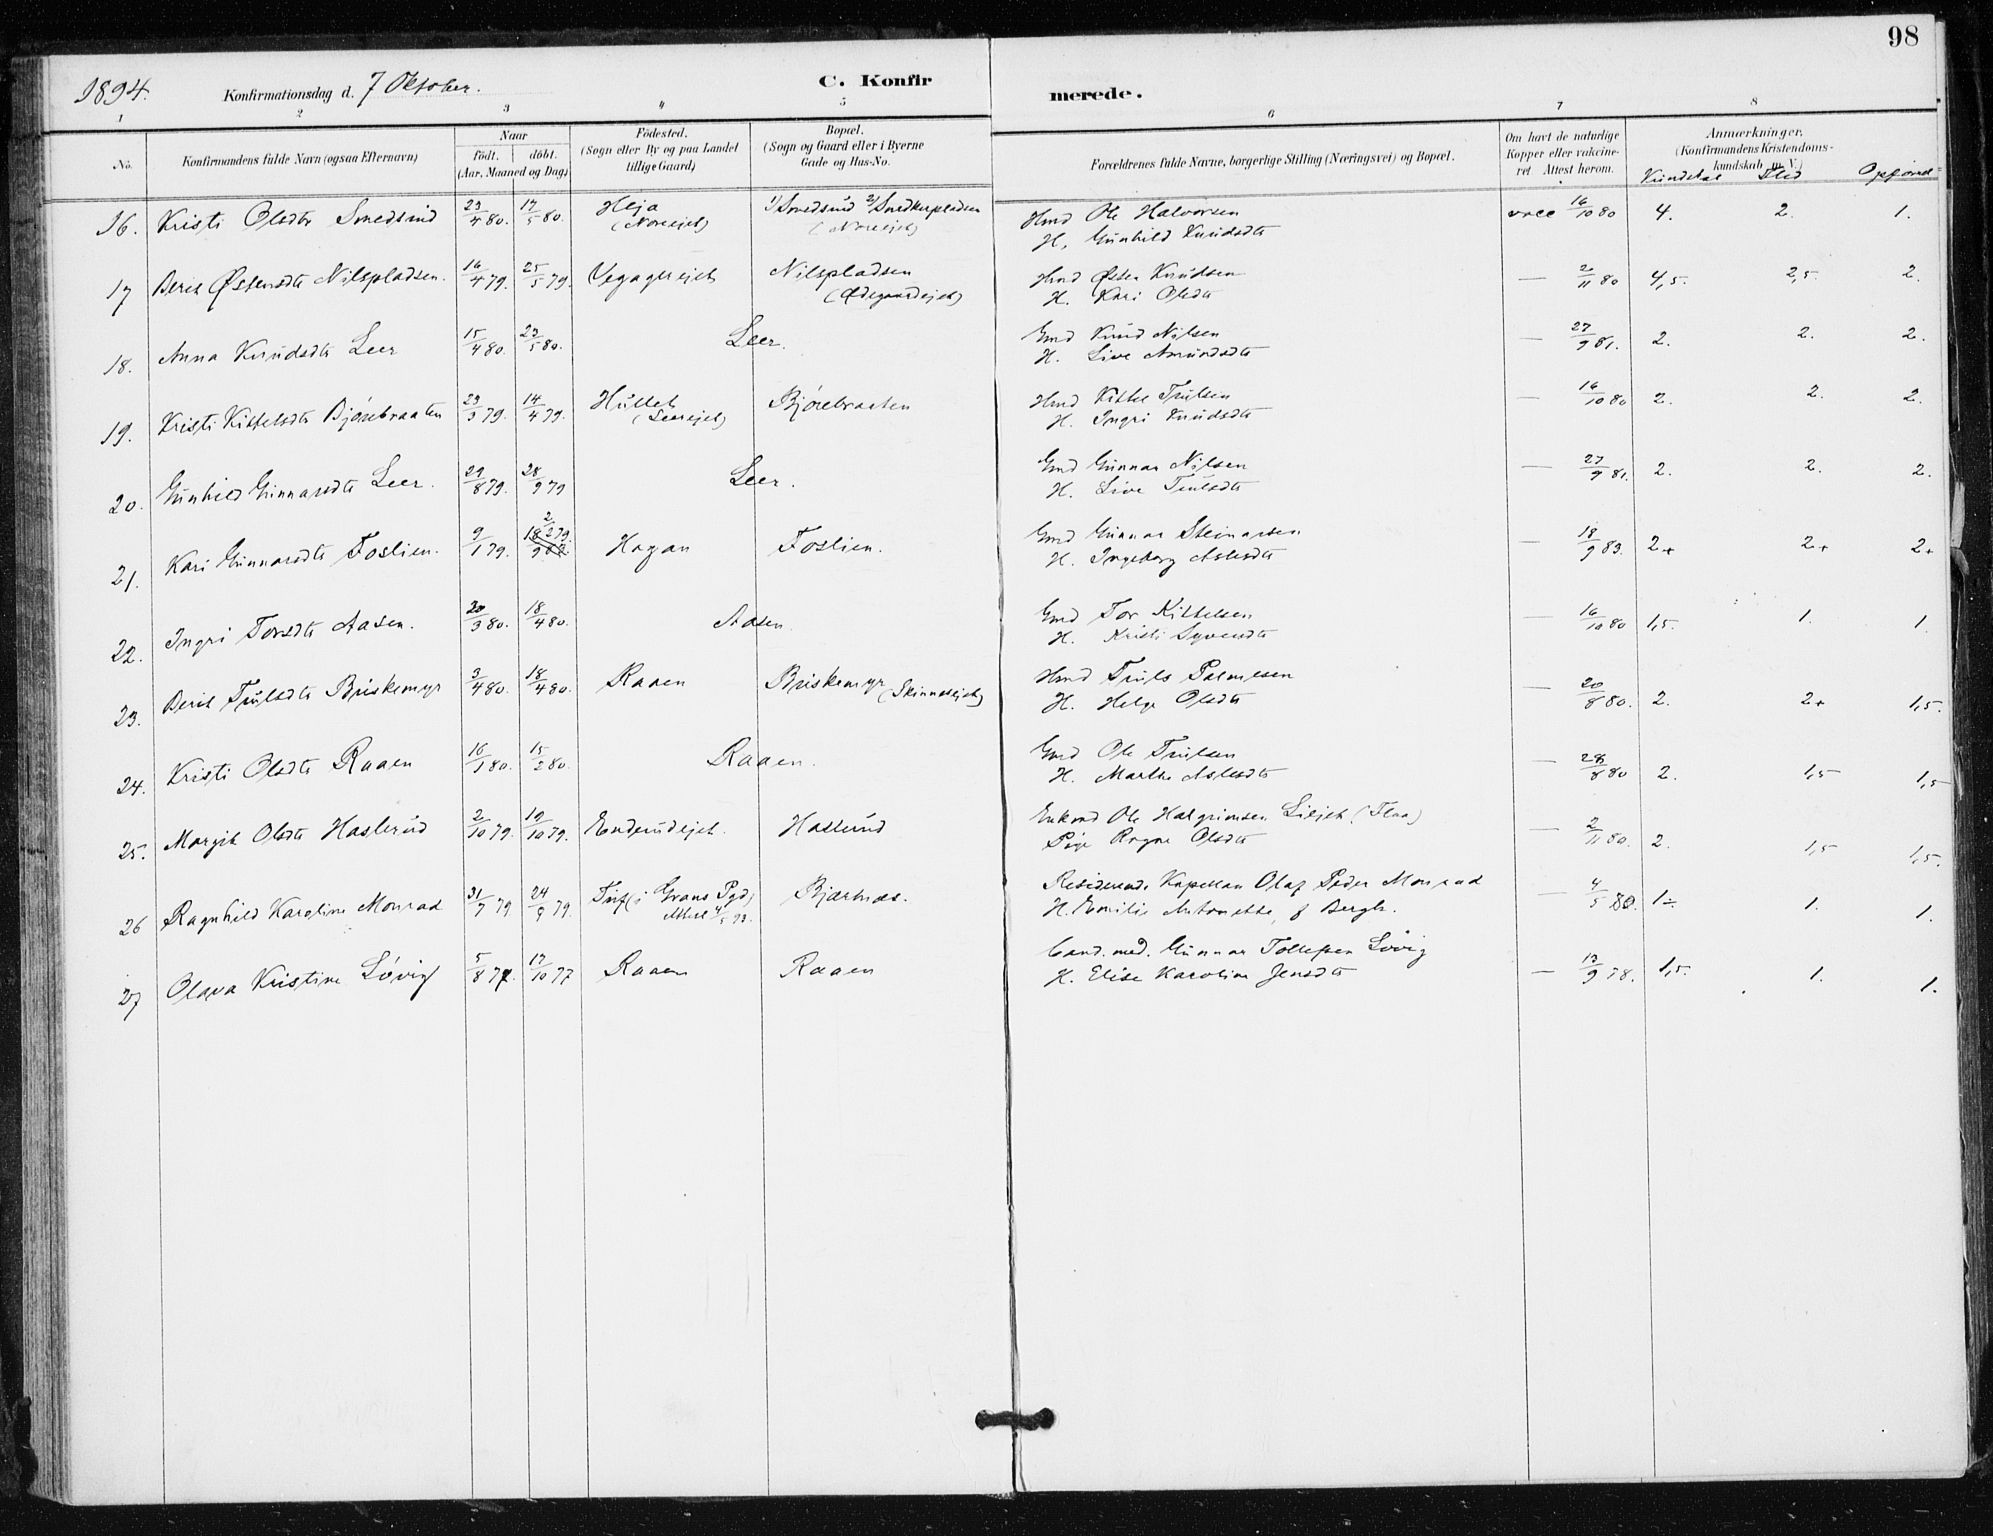 98
1894. Konfirmationsdag d. 7 Oktober.
C. Konfirmerede.
1 2 3 4 5 6 7 8
No. Konfirmandens fulde Navn (ogsaa Efternavn) Naar födt. döbt. (Aar, Maaned og Dag) Födested. (Sogn eller By og paa Landet tillige Gaard) Bopæl. (Sogn og Gaard eller i Byerne Gade og Hus-No. Forældrenes fulde Navne, borgerlige Stilling (Næringsvei) og Bopæl. Om havt de naturlige Kopper eller vaccineret Attest herom. Anmærkninger. (Konfirmandens Kristendomskundskab m. V.) Kundskab Flid Opførsel
16. Kristi Olsdtr Smedsrud 23/4 80. 17/5 80. Heja (Noreiet) 1) Smedsrud 2) Snedkerpladsen (Noreiet) Hmd Ole Halvorsen H. Gunhild Knudsdtr vacc 16/10 80 4. 2. 1.
17 Berit Østensdtr Nilspladsen. 16/4 79. 25/5 79. Nilspladsen (Ødegaardejet) Hmd Østen Knudsen H. Kari Olsdtr — 2/11 80 4,5. 2,5. 2.
18. Anna Knudsdtr Leer 15/4 80. 23/5 80. Leer. Gmd Knud Nilsen H. Live Amundsdtr — 27/9 81. 2. 2. 2.
19. Kristi Kittelsdtr Bjørebraaten 23/3 79. 14/4 79. Hullet (Leerejet) Bjørebraaten Hmd Kittel Trulsen H. Ingri Knudsdtr — 16/10 80 2. 2. 2.
20. Gunhild Gunnarsdtr Leer. 29/8 79. 28/9 79 Leer. Gmd Gunnar Nilsen H. Live Trulsdtr — 27/9 81. 2. 2. 2.
21. Kari Gunnarsdtr Foslien. 9/1 79. 2/2 79. Hagan Foslien. Gmd Gunnar Steinarsen H. Ingeborg Aslesdtr — 18/9 83. 2+ 2+ 2+
22. Ingri Torsdtr Aasen. 20/3 80. 18/4 80. Aasen. Gmd Tor Kittelsen H. Kristi Syvertdtr — 16/10 80 1,5. 1. 1.
23. Berit Trulsdtr Briskemyr 3/4 80. 18/4 80. Raaen Briskemyr (Skinnesejet) Hmd Truls Palmesen H. Helge Olsdtr — 20/8 80. 2. 2+ 1,5.
24. Kristi Olsdtr Raaen 16/1 80. 15/2 80. Raaen. Gmd Ole Trulsen H. Marthe Aslesdtr — 28/8 80 2. 1,5 1,5
25. Margit Olsdtr Haslerud 2/10 79. 19/10 79. Enderudejet. Haslerud Enkemd Ole Halgrimsen Liljet (Flaa) Pige Ragne Olsdtr — 2/11 80. 2. 1,5 1,5.
26 Ragnhild Karoline Monrad 31/7 79 24/9 79. (i Grans Pgd) Attest 4/5 93. Bjærtnæs. Residerende Kapellan Olaf Peder Monrad H. Emilie Antonette, f Bergh. — 4/5 80. 1÷ 1. 1.
27 Olava Kristine Løvig 5/8 77. 17/10 77 Raaen Raaen Cand. med. Gunnar Tollefsen Løvig H. Elise Karoline Jensdtr — 13/9 78. 1,5. 1. 1.